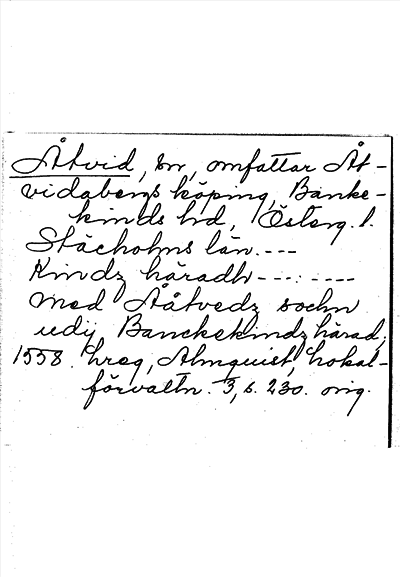 Åtvid, sn, omfattar Åt-
vidabergs köping, Banke-
kinds hd, Österg. l.
Stächolms län. ---
Kindz häradh ---:----
med Ååtvedz sochn
udij Banckekindz härad,
1558. Lreg, Almquist, Lokal-
förvaltn. 3, s. 230. orig.